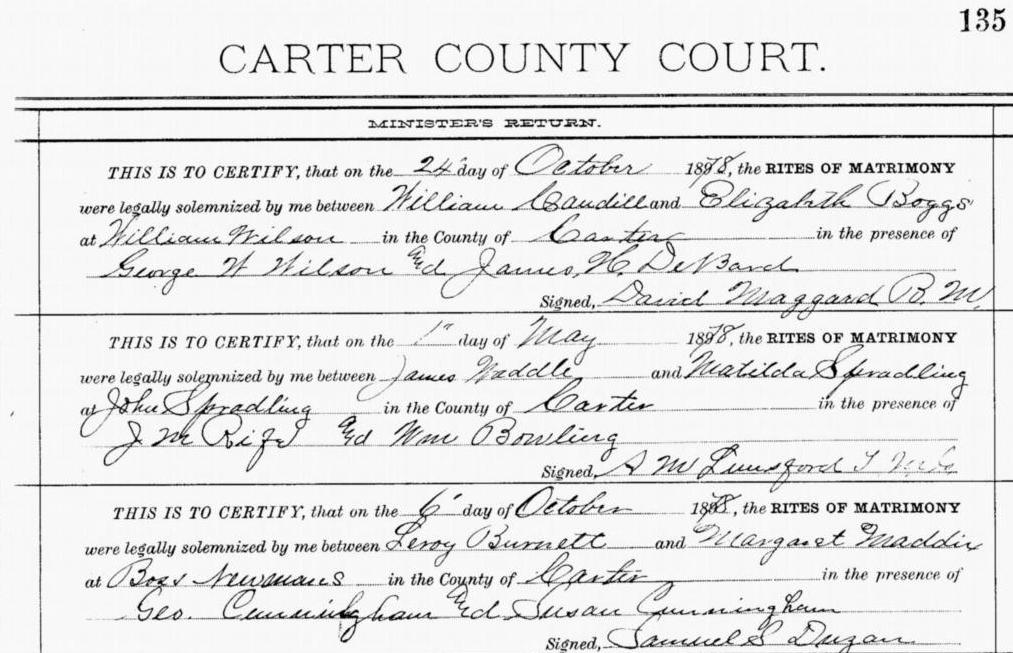 135
CARTER COUNTY COURT.
MINISTER'S RETURN.
THIS IS TO CERTIFY, that on the 24" day of October 1878, the RITES OF MATRIMONY
were legally solemnized by me between William Caudill and Elizabeth Boggs
at William Wilson in the County of Carter in the presence of
George W Wilson and James H. DeBard
Signed, David Maggard B. M.
THIS IS TO CERTIFY, that on the 1" day of May 1878, the RITES OF MATRIMONY
were legally solemnized by me between James Waddle and Matilda Spradling
at John Spradling in the County of Carter in the presence of
J M Rife and Wm Bowling
Signed, A M Lunsford
THIS IS TO CERTIFY, that on the 6" day of October 1878, the RITES OF MATRIMONY
were legally solemnized by me between Leroy Burnett and Margaret Maddix
at Boss Newmans in the County of Carter in the presence of
Geo. Cunningham and Susan Cunningham
Signed, Samuel S Duzan